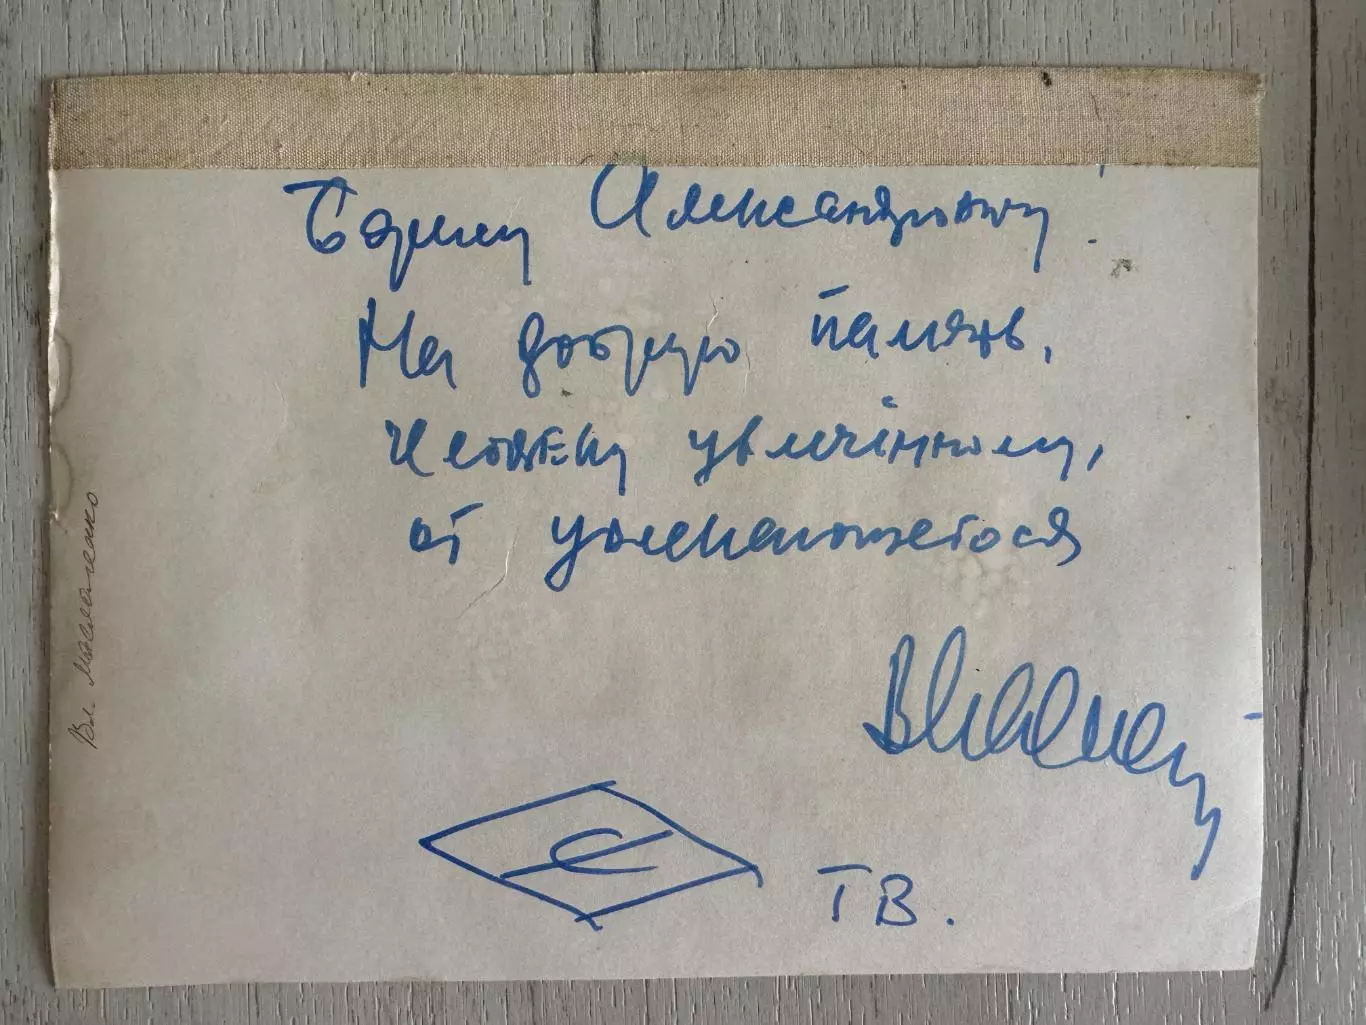 Борису Александровичу!
На добрую память,
человеку увлечённому,
от увлекающегося
С
ТВ.
Вл. Маслаченко